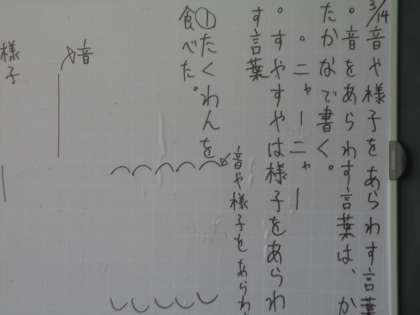 3/14 音や様子をあらわす言葉
。音をあらわす言葉は、か
たかなで書く。
。ニャーニャー
。すやすやは様子をあらわ
す言葉
①たくわんを
食べた。
音や様子をあらわ
音や
様子